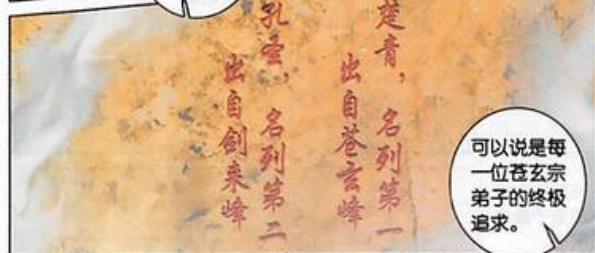 楚青，名列第一
出自苍玄峰
孔圣，名列第二
出自剑来峰
可以说是每
一位苍玄宗
弟子的终极
追求。